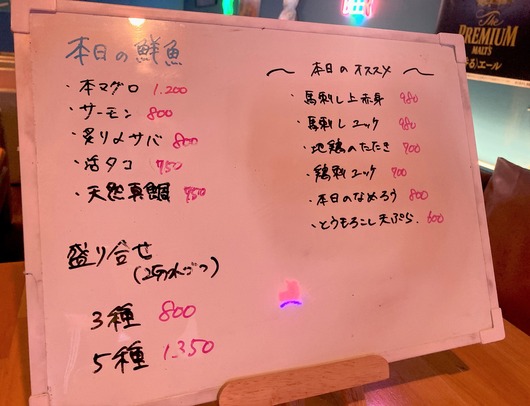 本日の鮮魚
・本マグロ 1.200
・サーモン 800
・炙り〆サバ 800
・活タコ 750
・天然真鯛 750
盛り合せ
(2切れづつ)
3種 800
5種 1.350
〜 本日のオススメ 〜
・馬刺し上赤身 980
・馬刺しユッケ 980
・地鶏のたたき 700
・鶏刺ユッケ 700
・本日のなめろう 800
・とうもろこし天ぷら. 600
The
PREMIUM
MALT'S
エール